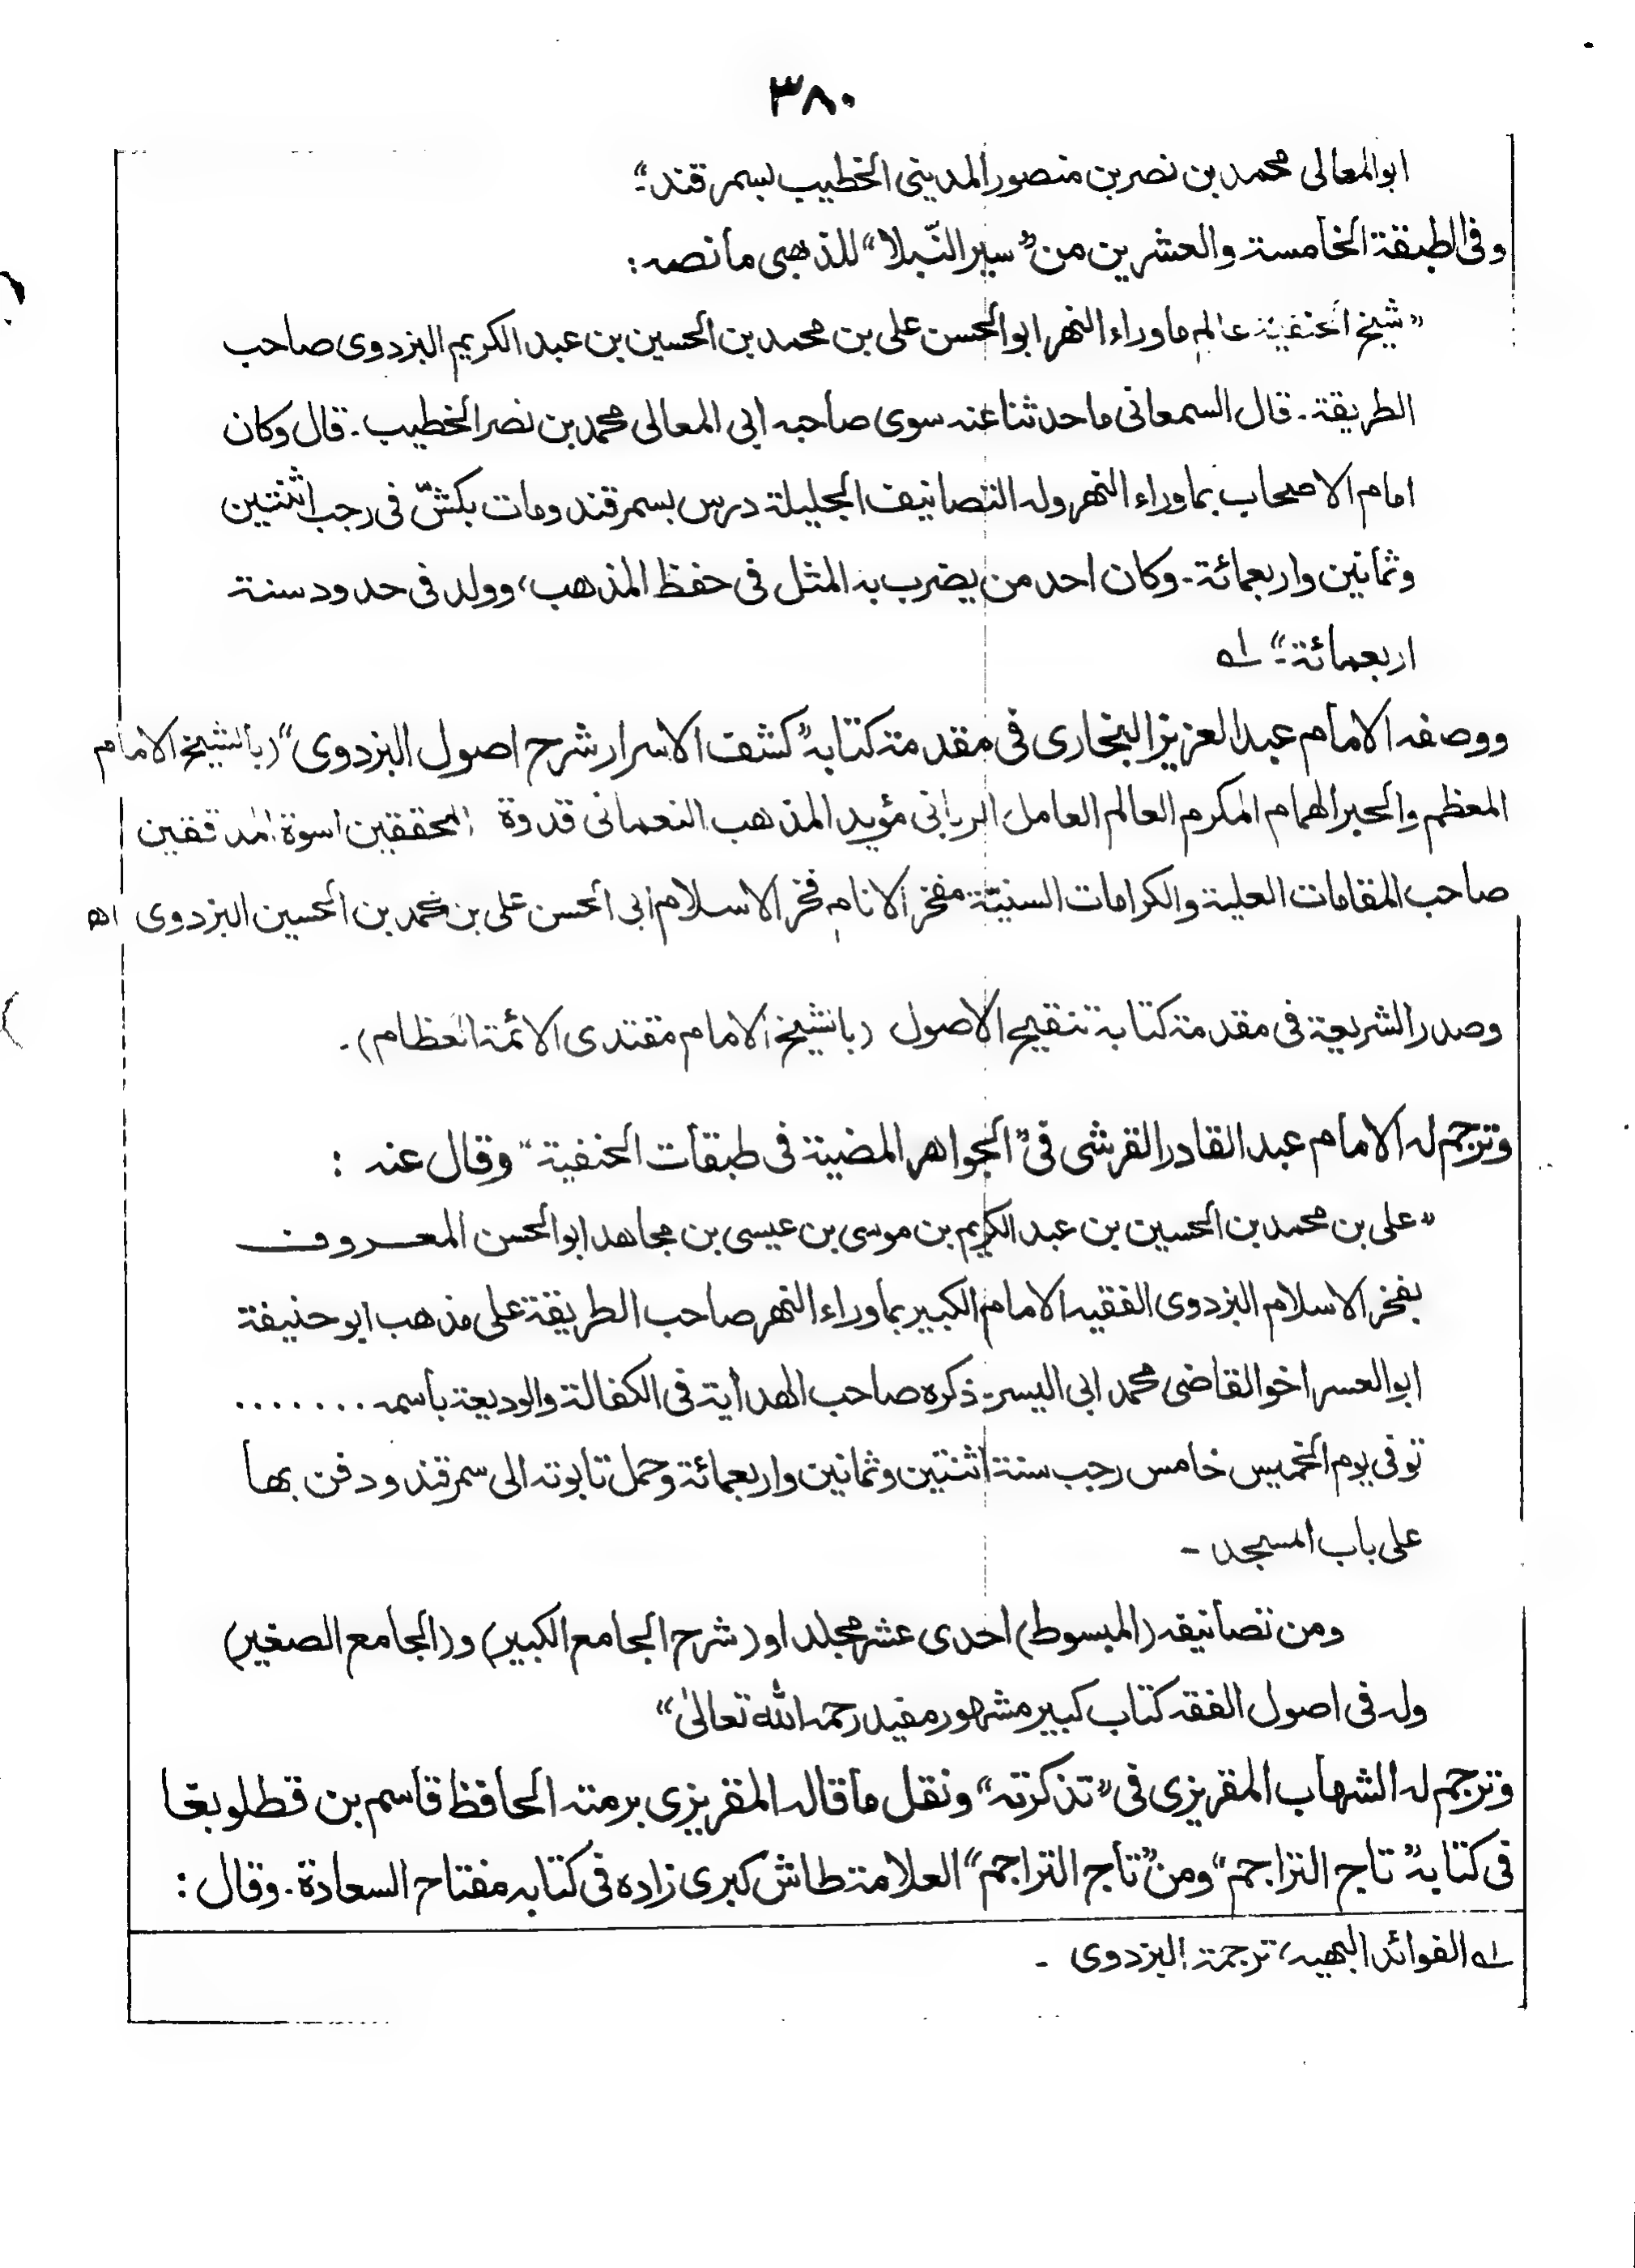 ٣٨٠
ابوالمعالى محمد بن نصر بن منصور المدينى الخطيب بسمرقند"۔
وفى الطبقة الخامسة والعشرين من "سير النّبلا" للذهبى ما نصه :
"شيخ الحنفية عالم ما وراء النهر ابوالحسن على بن محمد بن الحسين بن عبد الكريم البزدوى صاحب
الطريقة۔ قال السمعانى ما حدثنا عنه سوى صاحبه ابى المعالى محمد بن نصر الخطيب۔ قال وكان
امام الاصحاب بما وراء النهر وله التصانيف الجليلة درس بسمرقند ومات بكشّ فى رجب اثنتين
وثمانين واربعمائة۔ وكان احد من يضرب به المثل فى حفظ المذهب، وولد فى حدود سنة
اربعمائة۔" لـه
ووصفه الامام عبد العزيز البخارى فى مقدمة كتابه "كشف الاسرار شرح اصول البزدوى" (بالشيخ الامام
المعظم والحبر الهمام المكرم العالم العامل الربانى مؤيد المذهب النعمانى قدوة المحققين اسوة المدققين
صاحب المقامات العلية والكرامات السنيّة مفخر الانام فخر الاسلام ابى الحسن على بن محمد بن الحسين البزدوى اھ
وصدر الشريعة فى مقدمة كتابه تنقيح الاصول (بالشيخ الامام مقتدى الائمة العظام)۔
وترجم له الامام عبد القادر القرشى فى "الجواهر المضية فى طبقات الحنفية" وقال عنه :
"على بن محمد بن الحسين بن عبد الكريم بن موسى بن عيسى بن مجاهد ابوالحسن المعروف
بفخر الاسلام البزدوى الفقيه الامام الكبير بما وراء النهر صاحب الطريقة على مذهب ابو حنيفة
ابو العسر اخو القاضى محمد ابى اليسر۔ ذكره صاحب الهداية فى الكفالة والوديعة باسمه ........
توفى يوم الخميس خامس رجب سنة اثنتين وثمانين واربعمائة وحمل تابوته الى سمرقند ودفن بها
على باب المسجد ـ
ومن تصانيفه (المبسوط) احدى عشر مجلدا و (شرح الجامع الكبير) و (الجامع الصغير)
وله فى اصول الفقه كتاب كبير مشهور مفيد رحمه الله تعالىٰ"
وترجم له الشهاب المقريزى فى "تذكرته" ونقل ما قاله المقريزى برمته الحافظ قاسم بن قطلوبغا
فى كتابه "تاج التراجم" ومن "تاج التراجم" العلامة طاش كبرى زاده فى كتابه مفتاح السعادة۔ وقال :
لـه الفوائد البهيه، ترجمة البزدوى ۔